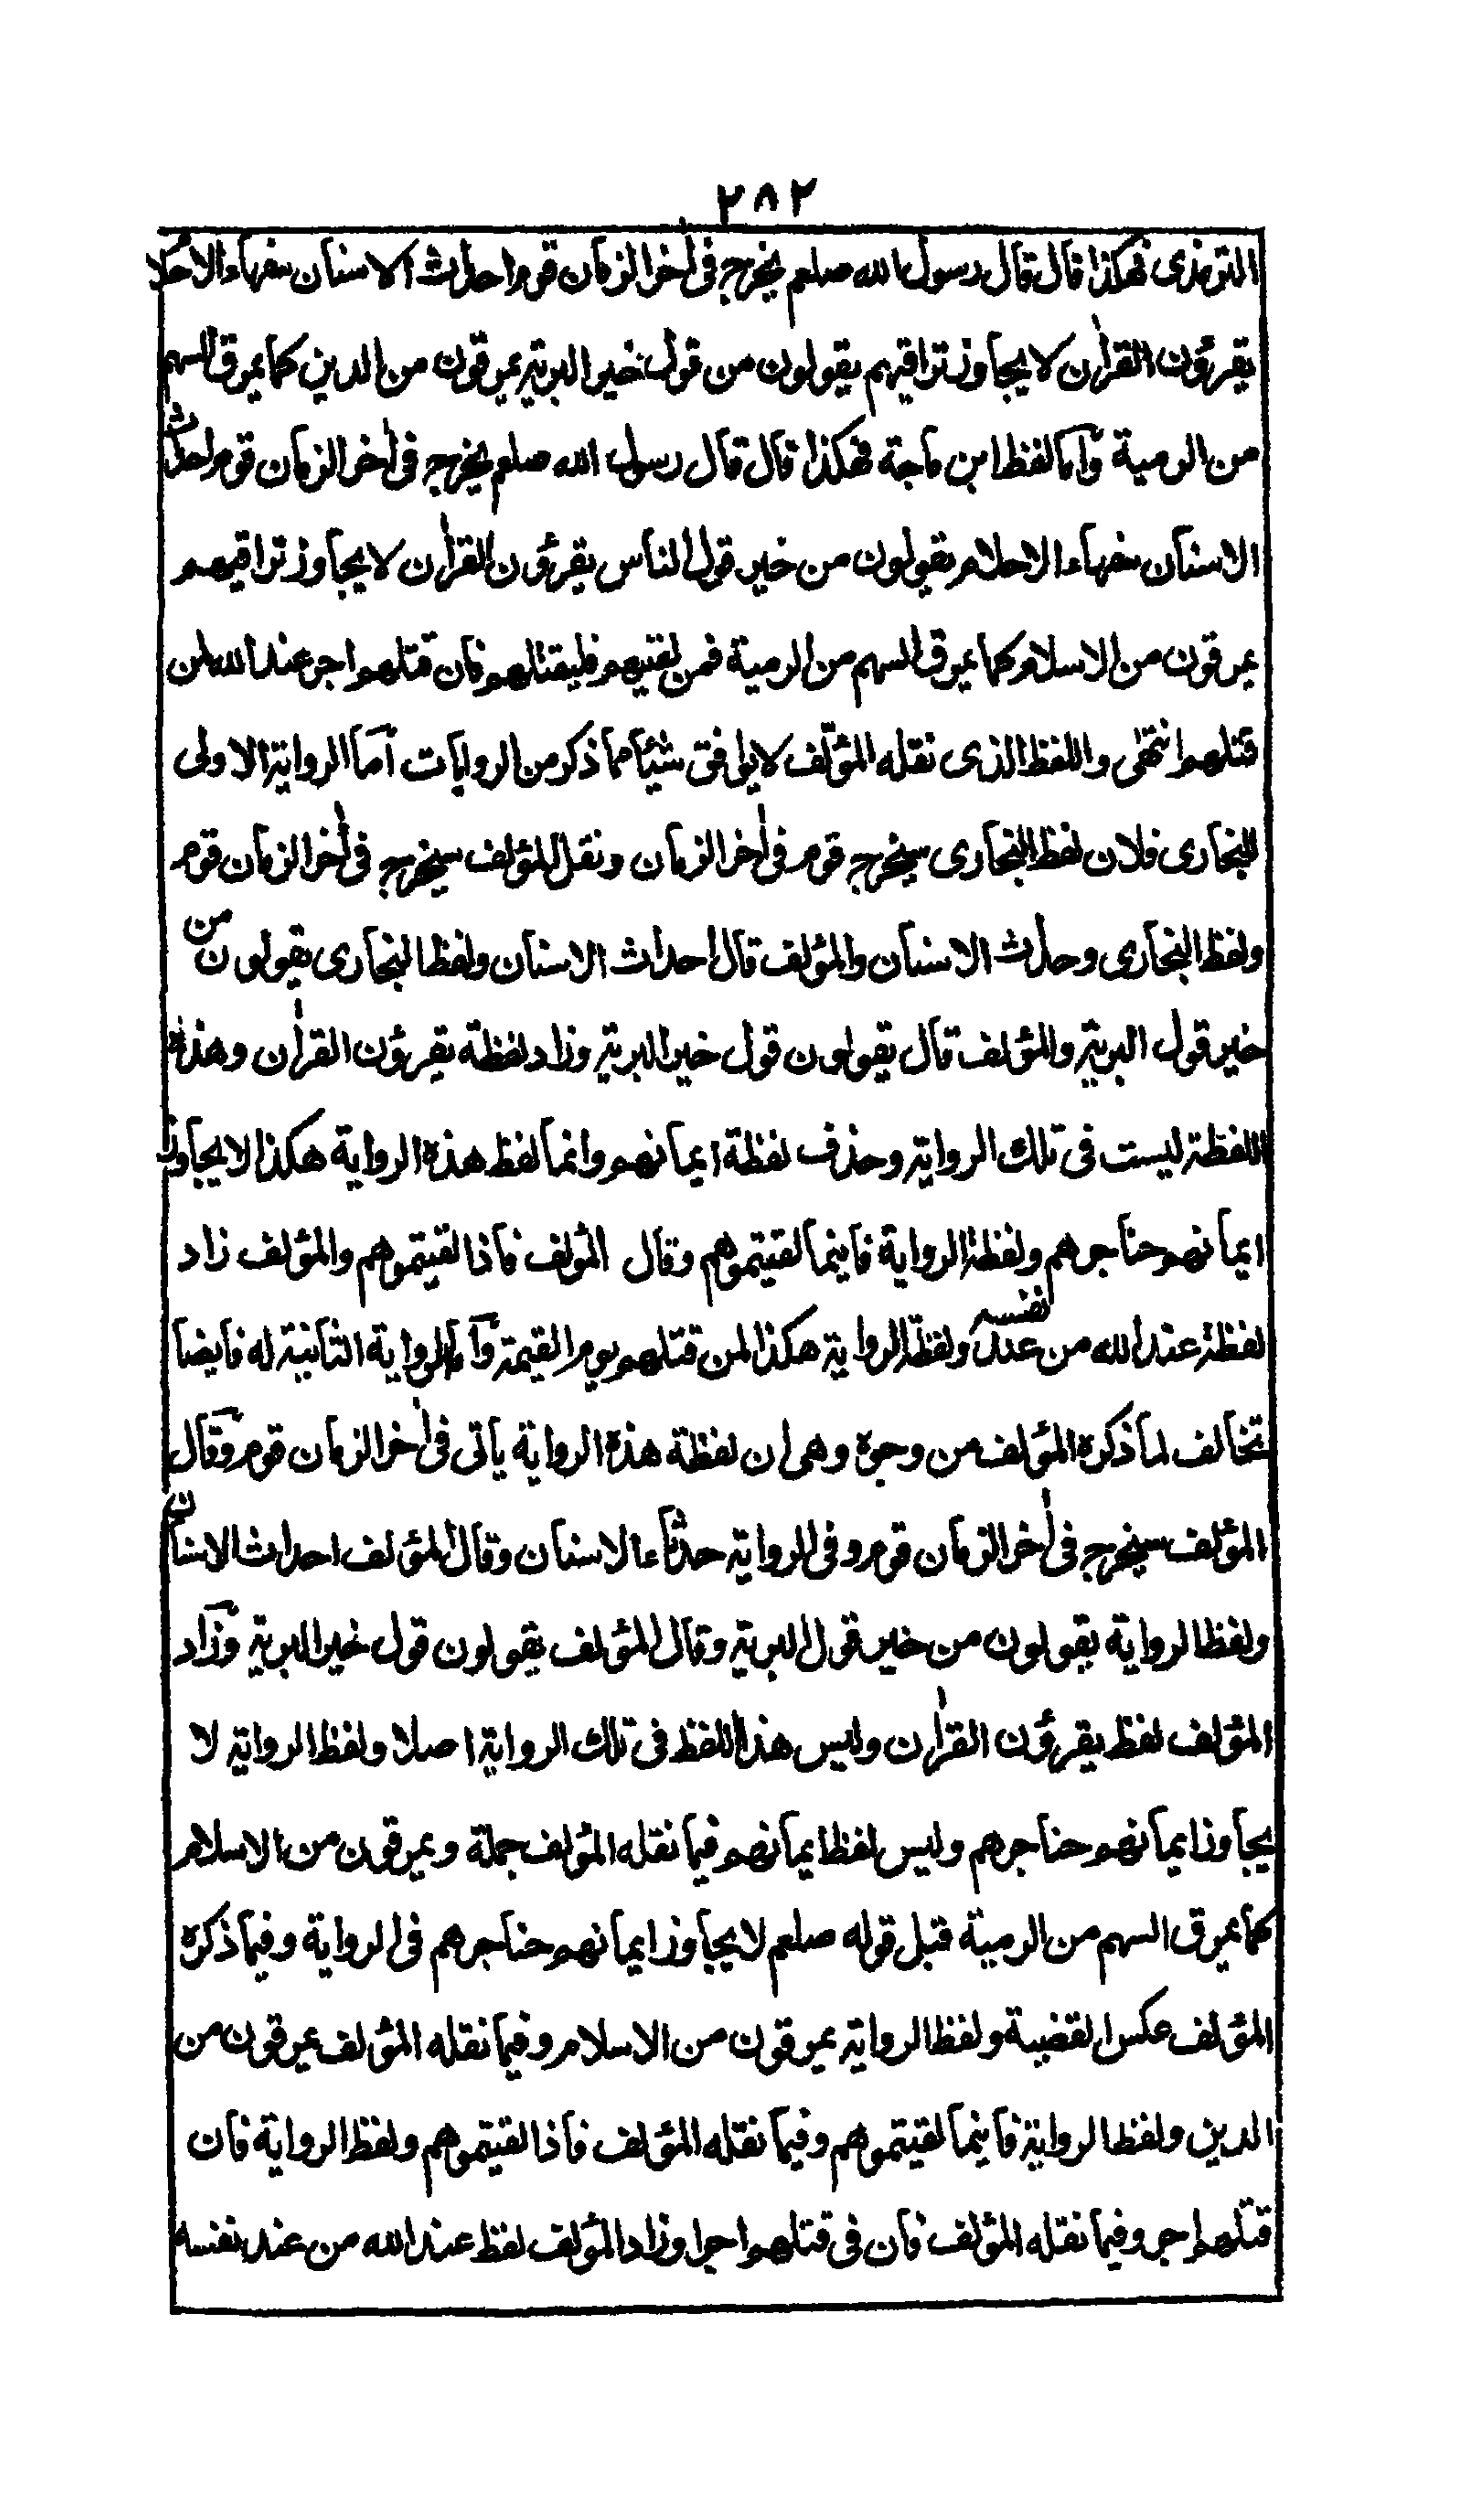 ٢٨٢
الترمذى فهكذا قال قال رسول الله صلعم يخرج فى اٰخر الزمان قوم احداث الاسنان سفهاء الاحلا
يقرؤن القراٰن لا يجاوز تراقيهم يقولون من قول خير البرية يمرقون من الدين كما يمرق السهم
من الرمية وآما لفظ ابن ماجة فهكذا قال قال رسول الله صلعم يخرج فى اٰخر الزمان قوم احداث
الاسنان سفهاء الاحلام يقولون من خير قول الناس يقرؤن القراٰن لا يجاوز تراقيهم
يمرقون من الاسلام كما يمرق السهم من الرمية فمن لقيهم فليقتلهم فان قتلهم اجر عند الله لمن
قتلهم انتهٰى واللفظ الذى نقله المؤلف لا يوافق شيئا مما ذكر من الروايات آما الرواية الاولى
للبخارى فلان لفظ البخارى سيخرج قوم فى اٰخر الزمان ونقل المؤلف سيخرج فى اٰخر الزمان قوم
ولفظ البخارى وحداث الاسنان والمؤلف قال احداث الاسنان ولفظ البخارى يقولون من
خير قول البرية والمؤلف قال يقولون قول خير البرية وزاد لفظة يقرؤن القراٰن وهذه
اللفظة ليست فى تلك الرواية وحذف لفظة ايمانهم وانما لفظ هذه الرواية هكذا لا يجاوز
ايمانهم حناجرهم ولفظ الرواية فاينما لقيتموهم وقال المؤلف فاذا لقيتموهم والمؤلف زاد
لفظة عند الله من عند نفسه ولفظ الرواية هكذا لمن قتلهم يوم القيمة وآما الرواية الثانية له فايضا
تخالف لما ذكره المؤلف من وجوه وهى ان لفظة هذه الرواية ياتى فى اٰخر الزمان قوم وقال
المؤلف سيخرج فى اٰخر الزمان قوم وفى الرواية حدثاء الاسنان وقال المؤلف احداث الاسنان
ولفظ الرواية يقولون من خير قول البرية وقال المؤلف يقولون قول خير البرية وزاد
المؤلف لفظ يقرؤن القراٰن وليس هذا اللفظ فى تلك الرواية اصلا ولفظ الرواية لا
يجاوز ايمانهم حناجرهم وليس لفظ ايمانهم فيما نقله المؤلف جملة ويمرقون من الاسلام
كما يمرق السهم من الرمية قبل قوله صلعم لا يجاوز ايمانهم حناجرهم فى الرواية وفيما ذكره
المؤلف عكس القضية ولفظ الرواية يمرقون من الاسلام وفيما نقله المؤلف يمرقون من
الدين ولفظ الرواية فاينما لقيتموهم وفيما نقله المؤلف فاذا لقيتموهم ولفظ الرواية فان
قتلهم اجر وفيما نقله المؤلف فان فى قتلهم اجرا وزاد المؤلف لفظ عند الله من عند نفسه